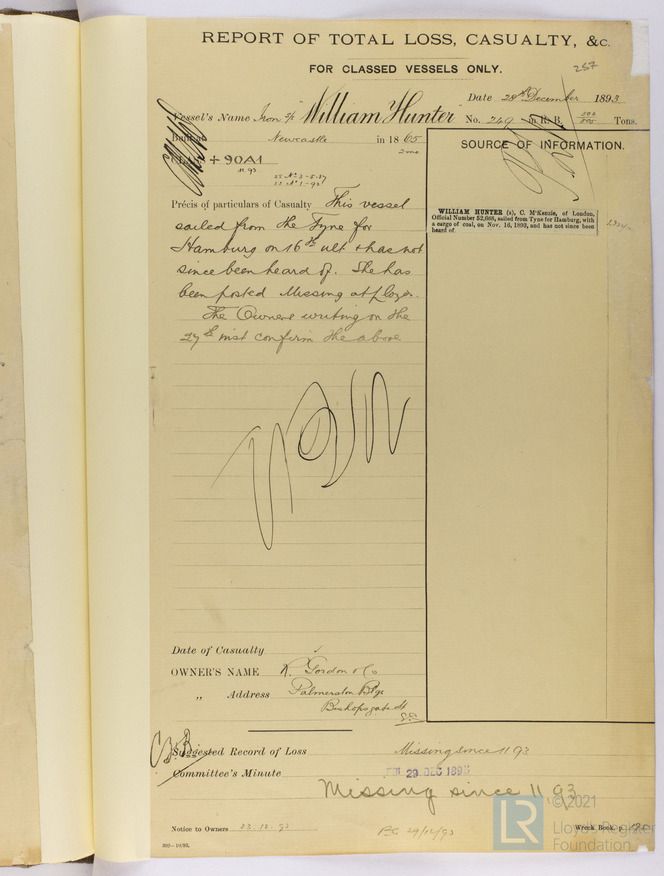 REPORT OF TOTAL LOSS, CASUALTY, &c.
257
FOR CLASSED VESSELS ONLY.
Date 28th December 1893
Vessel's Name Iron "William Hunter"
No. 249 in R. B. Tons.
Built at Newcastle in 1865
CLASS +90A1
11.93
SOURCE OF INFORMATION.
WILLIAM HUNTER (s), C. McKenzie, of London,
Official Number 52,668, sailed from Tyne for Hamburg, with
a cargo of coal, on Nov. 16, 1893, and has not since been
heard of.
Précis of particulars of Casualty This vessel
sailed from the Tyne for
Hamburg on 16th ult & has not
since been heard of. She has
been posted Missing at
The Owners writing on the
27th inst confirm the above
Date of Casualty
OWNER'S NAME K. Gordon & Co
„ Address Palmerston Bgs
Bishopsgate St
Suggested Record of Loss Missing since 11 93
Committee's Minute FRI. 29 DEC 1893
Missing since 11.93
Notice to Owners 23.12.93
29/12/93
Wreck Book, p.
LR ©2021
Lloyd's Register
Foundation